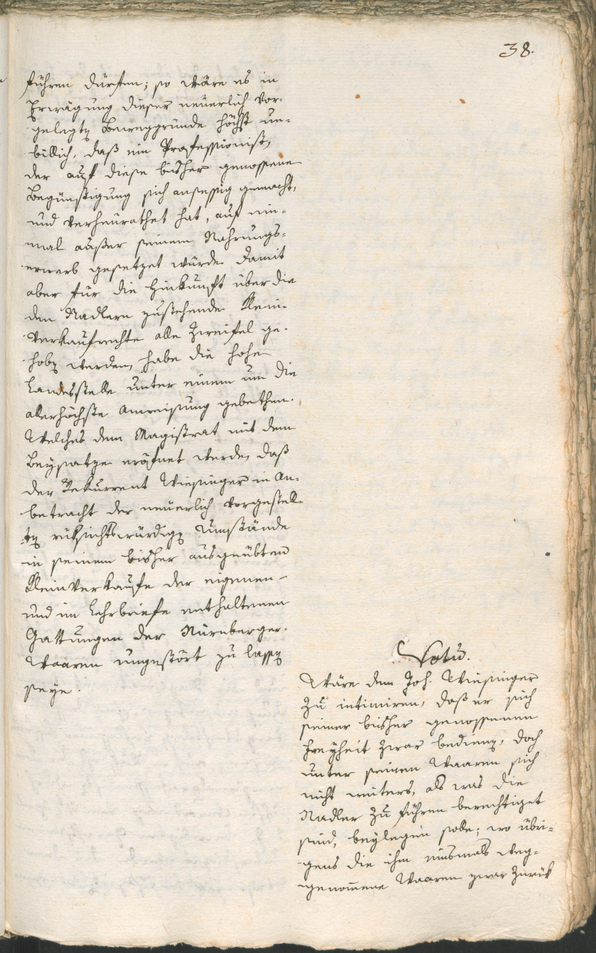 38.
führen dürfen; so wäre es in
Erwägung dieser neuerlich vor-
gelegten Beweggründe höchst un-
billich, daß ein Professionist,
der auf diese bisher genossene
Begünstigung sich ansessig gemacht,
und verheurathet hat, auf ein-
mal außer seinem Nahrungs-
erwerb gesetzet würde. Damit
aber für die Hinkunft über die
den Nadlern zustehende Klein-
verkaufsrechte alle Zweifel ge-
hoben werden, habe die hohe
Landesstelle unter einem um die
allerhöchste Anweisung gebethen.
Welches dem Magistrat mit dem
Beysatze eröfnet werde, daß
der Rekurrent Wiesinger in An-
betracht der neuerlich vorgestell-
ten rüksichtswürdigen Umstände
in seinem bisher ausgeübten
Kleinverkaufe der eigenen
und im Lehrbriefe enthaltenen
Gattungen der Nürnberger-
Waaren ungestört zu lassen
seye.
Wäre dem Joh. Wiesinger
zu intimiren, daß er sich
seiner bisher genossenen
Freyheit zwar bedienen, doch
unter seinen Waaren sich
nicht weiters, als was die
Nadler zu führen berechtiget
sind, beylegen solle; wo übri-
gens die ihm einsmals weg-
genommene Waaren zwar zurük